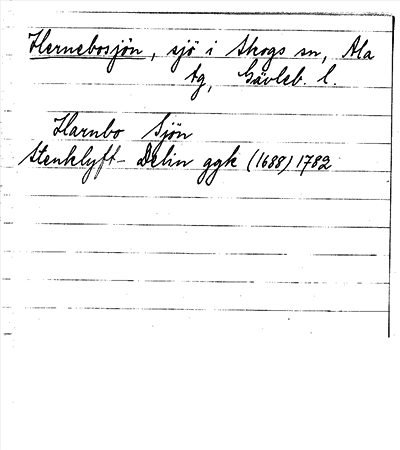 Hernebosjön, sjö i Skogs sn, Ala
tg, Gävleb. l.
Harnbo Sjön
Stenklyft- Delin ggk (1688) 1782